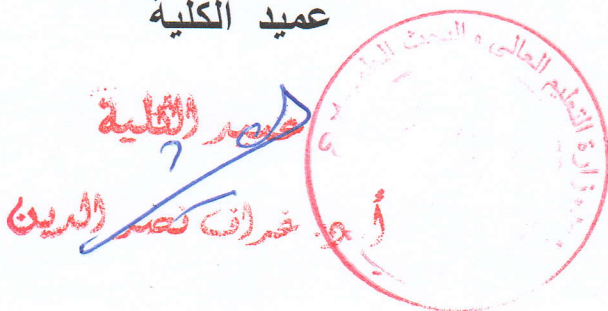 عميد الكلية
عميد الكلية
أ.د. غراف نصر الدين
وزارة التعليم العالي و البحث العلمي